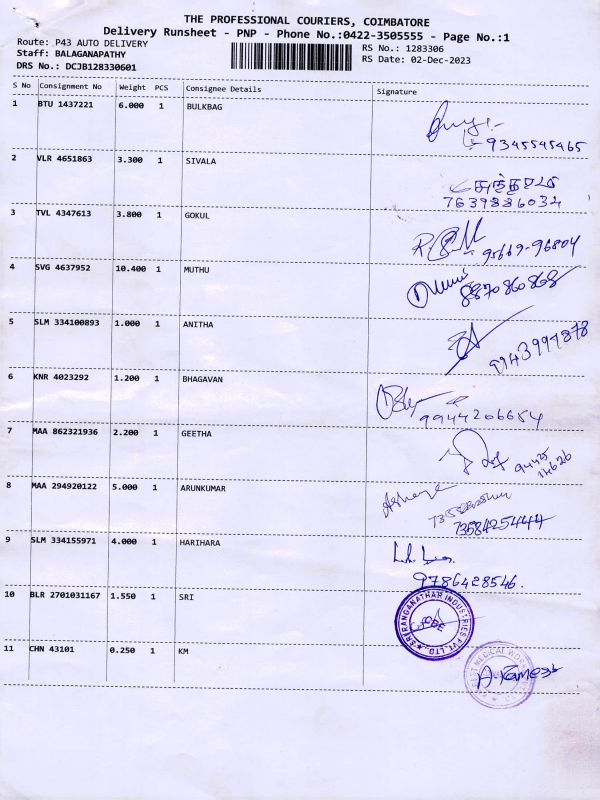 THE PROFESSIONAL COURIERS, COIMBATORE
Delivery Runsheet - PNP - Phone No.:0422-3505555 - Page No.:1
Route: P43 AUTO DELIVERY
RS No.: 1283306
Staff: BALAGANAPATHY
RS Date: 02-Dec-2023
DRS No.: DCJB128330601
S No Consignment No Weight PCS Consignee Details Signature
1 BTU 1437221 6.000 1 BULKBAG
9345545465
2 VLR 4651863 3.300 1 SIVALA
7639886034
3 TVL 4347613 3.800 1 GOKUL
95669-96804
4 SVG 4637952 10.400 1 MUTHU
8870860868
5 SLM 334100893 1.000 1 ANITHA
6 KNR 4023292 1.200 1 BHAGAVAN
9944206654
7 MAA 862321936 2.200 1 GEETHA
94425
14626
8 MAA 294920122 5.000 1 ARUNKUMAR
7358425444
9 SLM 334155971 4.000 1 HARIHARA
9786428546.
10 BLR 2701031167 1.550 1 SRI
SRI RANGANATHAR INDUSTRIES PVT. LTD.
CBE
11 CHN 43101 0.250 1 KM
A. Ramesh